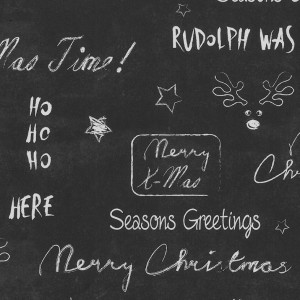 Seasons G
RUDOLPH WAS
Mas Time!
HO
HO
HO
Merry
X-Mas
Ch
HERE
Seasons Greetings
Merry Christmas